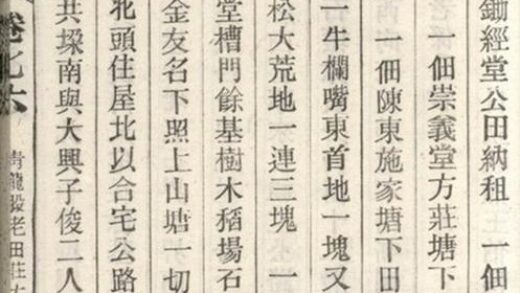 鋤經堂公田納租　一佃
一佃崇義堂方莊塘下
一佃陳東施家塘下田
一牛欄嘴東首地一塊又
松大荒地一連三塊　一
堂槽門餘基樹木稻場石
金友名下照上山塘一切
北頭住屋北以合宅公路
共垜南與大興子俊二人
青龍殿老田莊